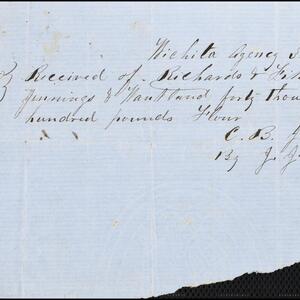 Wichita Agency
Received of Richards &
Jennings & Wantland forty thou
hundred pounds Flour
C. B.
By J.